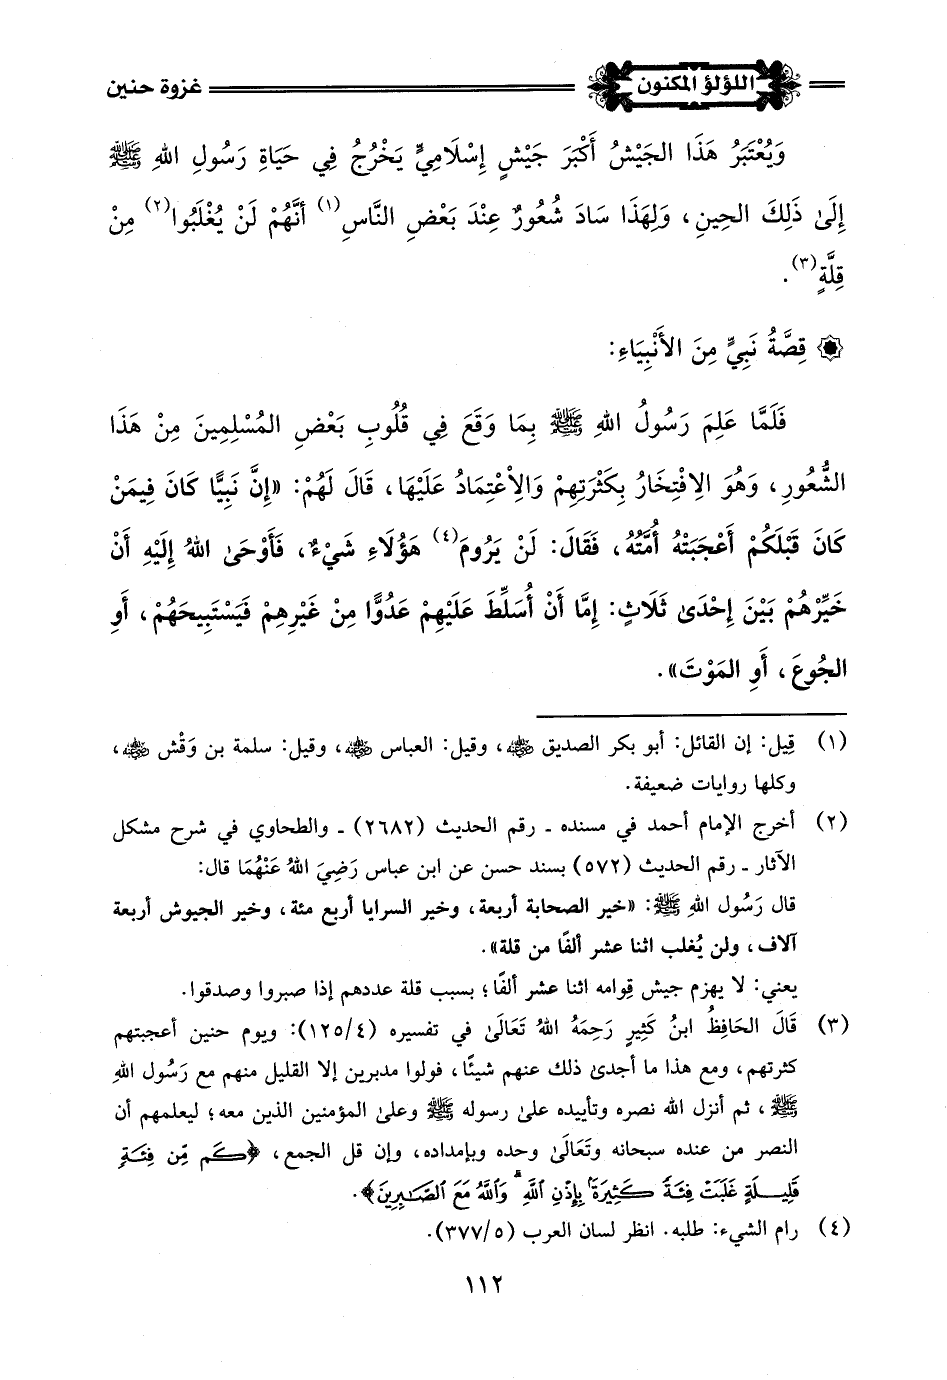 اللؤلؤ المكنون
غزوة حنين
وَيُعْتَبَرُ هَذَا الجَيْشُ أَكْبَرَ جَيْشٍ إِسْلَامِيٍّ يَخْرُجُ فِي حَيَاةِ رَسُولِ اللهِ ﷺ
إِلَىٰ ذَلِكَ الحِينِ، وَلِهَذَا سَادَ شُعُورٌ عِنْدَ بَعْضِ النَّاسِ(١) أَنَّهُمْ لَنْ يُغْلَبُوا(٢) مِنْ
قِلَّةٍ(٣).
قِصَّةُ نَبِيٍّ مِنَ الأَنْبِيَاءِ:
فَلَمَّا عَلِمَ رَسُولُ اللهِ ﷺ بِمَا وَقَعَ فِي قُلُوبِ بَعْضِ المُسْلِمِينَ مِنْ هَذَا
الشُّعُورِ، وَهُوَ الِافْتِخَارُ بِكَثْرَتِهِمْ وَالِاْعْتِمَادُ عَلَيْهَا، قَالَ لَهُمْ: «إِنَّ نَبِيًّا كَانَ فِيمَنْ
كَانَ قَبْلَكُمْ أَعْجَبَتْهُ أُمَّتُهُ، فَقَالَ: لَنْ يَرُومَ(٤) هَؤُلَاءِ شَيْءٌ، فَأَوْحَىٰ اللهُ إِلَيْهِ أَنْ
خَيِّرْهُمْ بَيْنَ إِحْدَىٰ ثَلَاثٍ: إِمَّا أَنْ أُسَلِّطَ عَلَيْهِمْ عَدُوًّا مِنْ غَيْرِهِمْ فَيَسْتَبِيحَهُمْ، أَوِ
الجُوعَ، أَوِ المَوْتَ».
(١) قِيل: إن القائل: أبو بكر الصديق ﷺ، وقيل: العباس ﷺ، وقيل: سلمة بن وَقْش ﷺ،
وكلها روايات ضعيفة.
(٢) أخرج الإمام أحمد في مسنده ـ رقم الحديث (٢٦٨٢) ـ والطحاوي في شرح مشكل
الآثار ـ رقم الحديث (٥٧٢) بسند حسن عن ابن عباس رَضِيَ اللهُ عَنْهُمَا قال:
قال رَسُول اللهِ ﷺ: «خير الصحابة أربعة، وخير السرايا أربع مئة، وخير الجيوش أربعة
آلاف، ولن يُغلب اثنا عشر ألفًا من قلة».
يعني: لا يهزم جيش قِوامه اثنا عشر ألفًا؛ بسبب قلة عددهم إذا صبروا وصدقوا.
(٣) قَالَ الحَافِظُ ابنُ كَثِيرٍ رَحِمَهُ اللهُ تَعَالَىٰ في تفسيره (١٢٥/٤): ويوم حنين أعجبتهم
كثرتهم، ومع هذا ما أجدىٰ ذلك عنهم شيئًا، فولوا مدبرين إلا القليل منهم مع رَسُول اللهِ
ﷺ، ثم أنزل الله نصره وتأييده علىٰ رسوله ﷺ وعلىٰ المؤمنين الذين معه؛ ليعلمهم أن
النصر من عنده سبحانه وتَعَالَىٰ وحده وبإمداده، وإن قل الجمع، ﴿كَم مِّن فِئَةٍ
قَلِيلَةٍ غَلَبَتْ فِئَةً كَثِيرَةً بِإِذْنِ اللَّهِ ۗ وَاللَّهُ مَعَ الصَّٰبِرِينَ﴾.
(٤) رام الشيء: طلبه. انظر لسان العرب (٣٧٧/٥).
١١٢